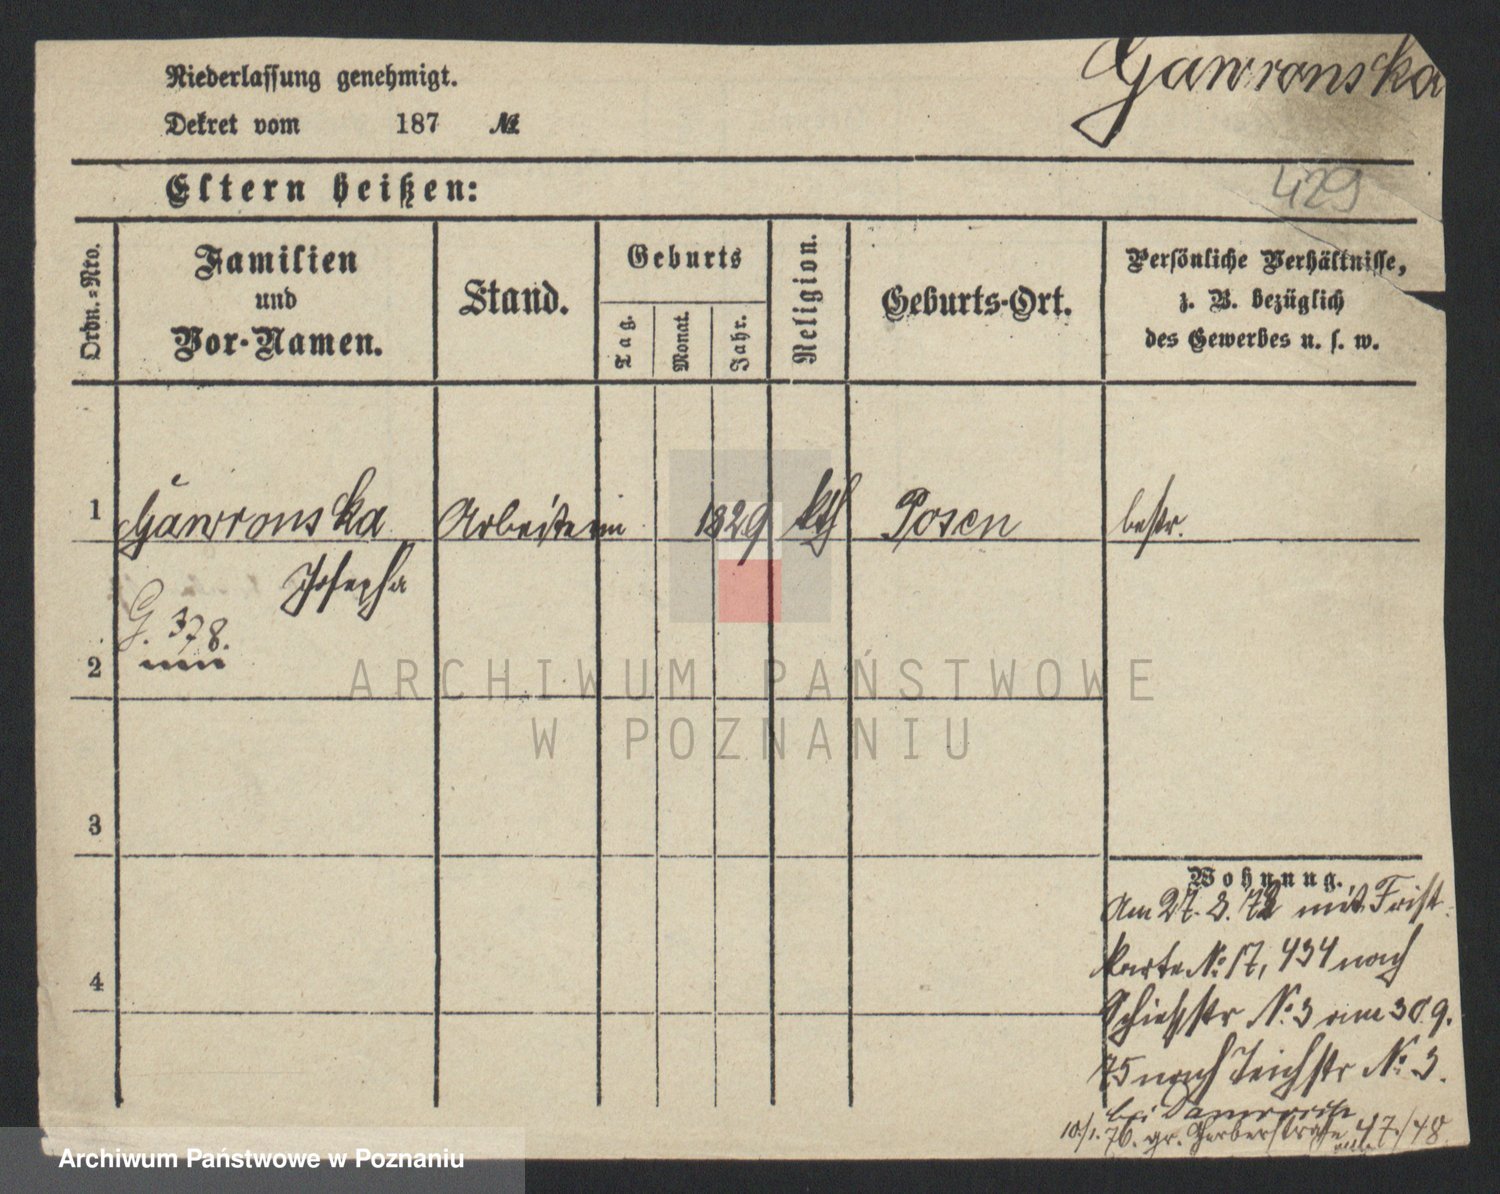 Niederlassung genehmigt.
Gawronska
Dekret vom 187 №
Eltern heißen:
429
Ordn.=Nro.
Familien
und
Vor-Namen.
Stand.
Geburts
Tag.
Monat.
Jahr.
Religion.
Geburts-Ort.
Persönliche Verhältnisse,
z. B. bezüglich
des Gewerbes u. s. w.
1 Gawronska Arbeiterin 1829 kth Posen bestr.
Josepha
G. 378.
2
ARCHIWUM PAŃSTWOWE
W POZNANIU
3
Wohnung.
Am 27. 8. 72 mit Frist
karte No 17,434 nach
4
Schießstr No 3 am 30 9.
75 nach Teichstr No 3.
bei
10/1. 76. gr. Gerberstraße 47/48
Archiwum Państwowe w Poznaniu